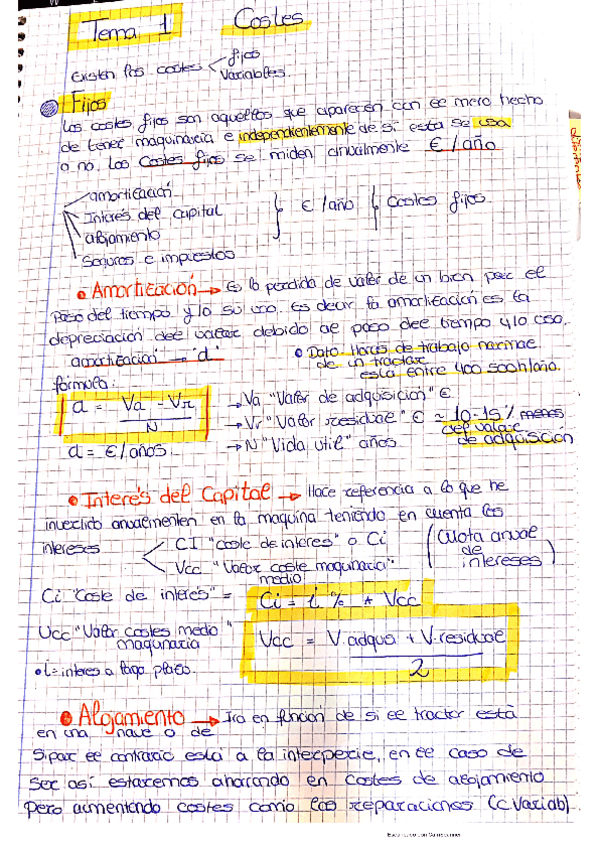 Tema 1 Costes
Existen los costes fijos
variables.
Fijos
Los costes fijos son aquellos que aparecen con el mero hecho
de tener maquinaria e independientemente de si esta se usa
o no. Los Costes fijos se miden anualmente € / año
amortización
Interés del capital
alojamiento
Seguros e impuestos
} € / año { Costes fijos.
• Amortización → Es la perdida de valor de un bien por el
paso del tiempo y/o su uso. Es decir la amortización es la
depreciación del valor debido al paso del tiempo y/o uso.
amortización → "d"
• Dato Horas de trabajo normal
de un tractor
está entre 400 500h/año.
formula:
a = Va - Vr / N
→ Va "Valor de adquisición" €
→ Vr "Valor residual" € ~ 10-15% menos
del valor
de adquisición
→ N "Vida util" años.
a = €/años.
• Interés del Capital → Hace referencia a lo que he
invertido anualmenten en la maquina teniendo en cuenta los
intereses
CI "coste de interes" o Ci
Vcc "Valor coste maquinaria"
medio
(Cuota anual
de
intereses)
Ci "Coste de interés" = Ci = i % * Vcc
Vcc "Valor costes medio"
maquinaria
Vcc = V.adqus + V.residual / 2
• i = interes a largo plazo.
• Alojamiento → Ira en función de si el tractor está
en una nave o de
si por el contrario está a la interperie, en el caso de
ser así estaremos ahorrando en costes de alojamiento
pero aumentando costes como las reparaciones (C.Variab).
Escaneado con CamScanner